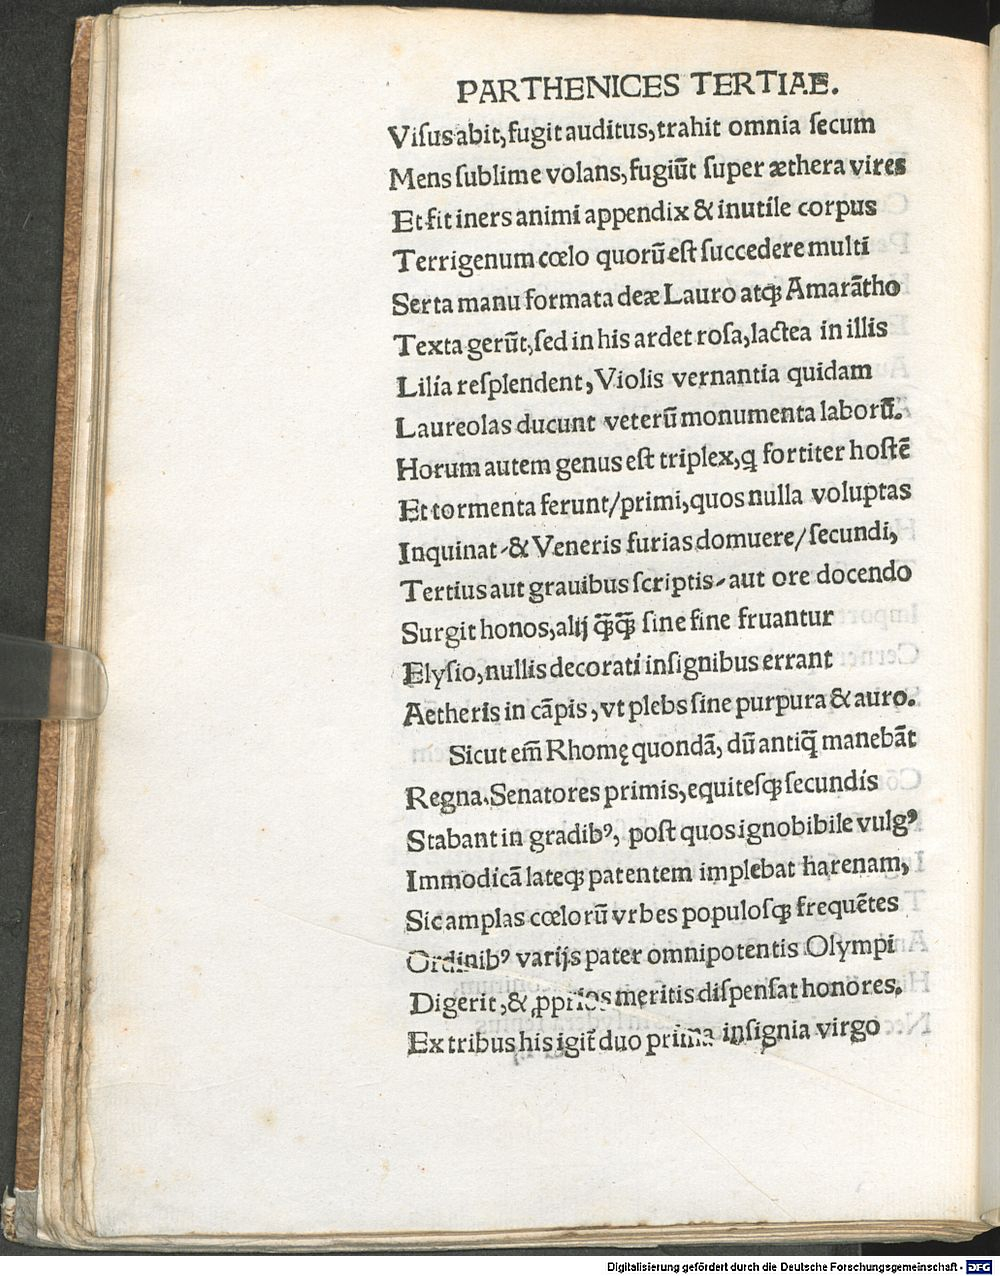 PARTHENICES TERTIAE.
Viſus abit, fugit auditus, trahit omnia ſecum
Mens ſublime volans, fugiūt ſuper æthera vires
Et fit iners animi appendix & inutile corpus
Terrigenum cœlo quorū eſt ſuccedere multi
Serta manu formata deæ Lauro atqꝫ Amarātho
Texta gerūt, ſed in his ardet roſa, lactea in illis
Lilia reſplendent, Violis vernantia quidam
Laureolas ducunt veterū monumenta laborū.
Horum autem genus eſt triplex, q fortiter hoſtē
Et tormenta ferunt/primi, quos nulla voluptas
Inquinat-& Veneris furias domuere/ſecundi,
Tertius aut grauibus ſcriptis-aut ore docendo
Surgit honos, alij q̄qꝫ̄ ſine fine fruantur
Elyſio, nullis decorati inſignibus errant
Aetheris in cāpis, vt plebs ſine purpura & auro.
Sicut em̄ Rhomę quondā, dū antiq̄ manebāt
Regna. Senatores primis, equiteſqꝫ ſecundis
Stabant in gradibꝰ, poſt quos ignobibile vulgꝰ
Immodicā lateqꝫ patentem implebat harenam,
Sic amplas cœlorū vrbes populoſqꝫ frequētes
Ordinibꝰ varijs pater omnipotentis Olympi
Digerit, & ꝓprios meritis diſpenſat honores.
Ex tribus his igit̄ duo prima inſignia virgo
Digitalisierung gefördert durch die Deutsche Forschungsgemeinschaft - DFG